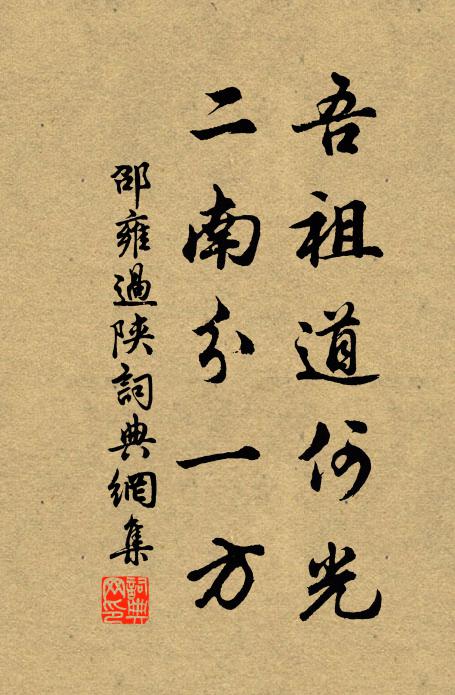 吾祖道何光
二南分一方
邵雍過陝詞典網集
詞典
網印